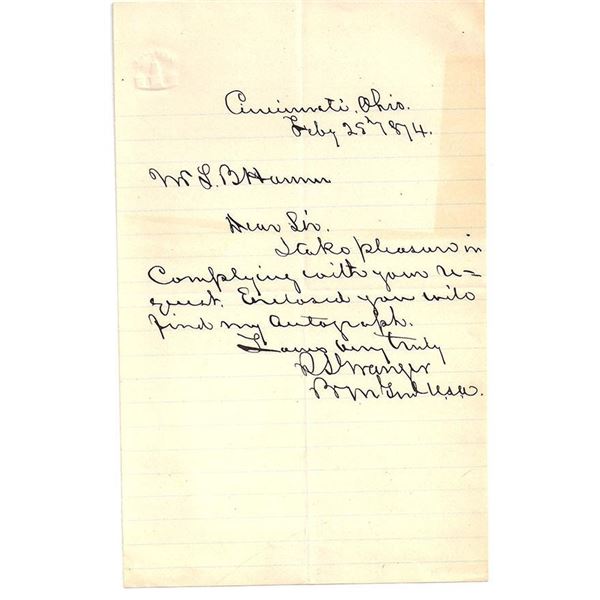 Cincinnati, Ohio.
Feby 25th 1874.
Mr L B Harmer
Dear Sir.
I take pleasure in
Complying with your re=
quest. Enclosed you will
find my autograph.
I am very truly
R S Granger
Bv M Genl U.S.A.